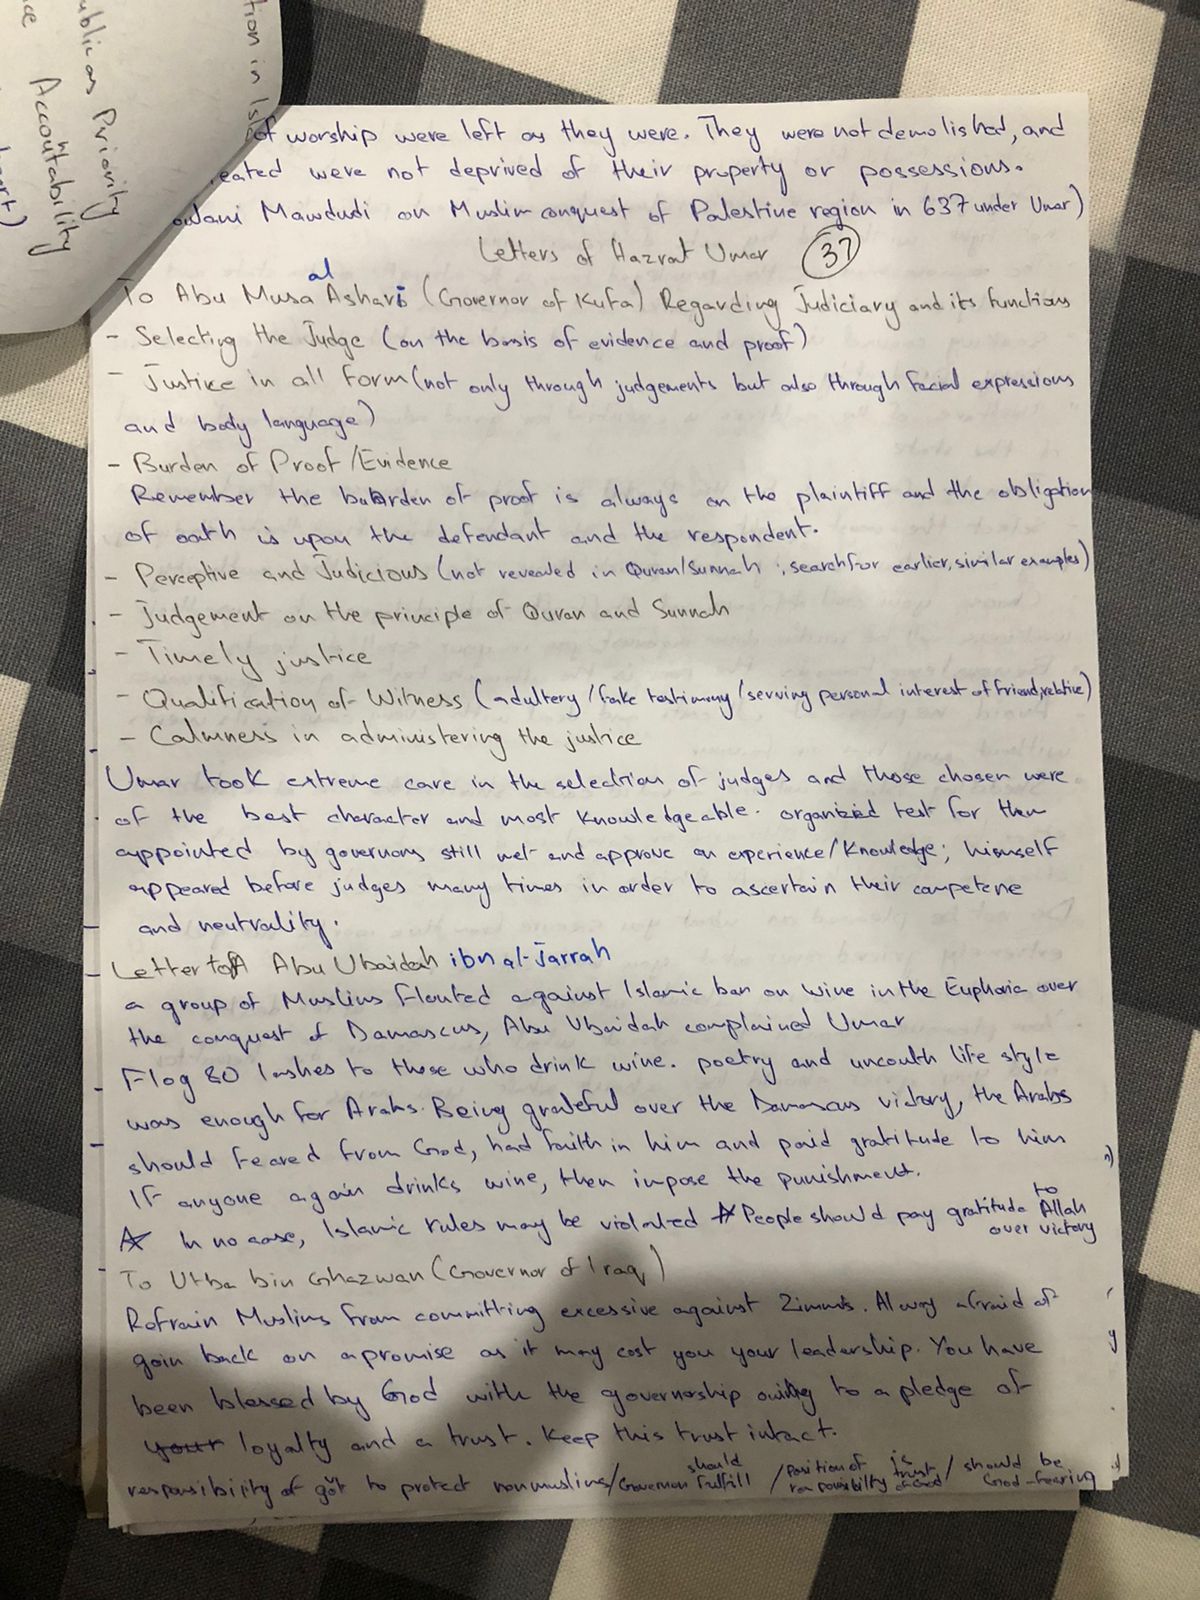 tion in Isl
ublic as Priority
Accountability
of worship were left as they were. They were not demolished, and
eated were not deprived of their property or possessions.
Mawdudi on Muslim conquest of Palestine region in 637 under Umar)
Letters of Hazrat Umar 37
To Abu Musa al Ashari (Governor of Kufa) Regarding Judiciary and its functions
- Selecting the Judge (on the basis of evidence and proof)
- Justice in all form (not only through judgements but also through facial expressions
and body language)
- Burden of Proof/Evidence
Remember the burden of proof is always on the plaintiff and the obligation
of oath is upon the defendant and the respondent.
- Perceptive and Judicious (not revealed in Quran/Sunnah ; search for earlier, similar examples)
- Judgement on the principle of Quran and Sunnah
- Timely justice
- Qualification of Witness (adultery/fake testimony/serving personal interest of friend, relative)
- Calmness in administering the justice
Umar took extreme care in the selection of judges and those chosen were
of the best character and most knowledgeable. organized test for them
appointed by governors still met and approve on experience/knowledge; himself
appeared before judges many times in order to ascertain their competene
and neutrality.
Letter to Abu Ubaidah ibn al-Jarrah
a group of Muslims flouted against Islamic ban on wine in the Euphoria over
the conquest of Damascus, Abu Ubaidah complained Umar
Flog 80 lashes to those who drink wine. poetry and uncouth life style
was enough for Arabs. Being grateful over the Damascus victory, the Arabs
should feared from God, had faith in him and paid gratitude to him
If anyone again drinks wine, then impose the punishment.
* In no case, Islamic rules may be violated * People should pay gratitude to Allah
over victory
To Utba bin Ghazwan (Governor of Iraq)
Refrain Muslims from committing excessive against Zimmis. Alway afraid of
goin back on a promise as it may cost you your leadership. You have
been blessed by God with the governorship owing to a pledge of
your loyalty and a trust. Keep this trust intact.
responsibility of govt to protect nonmuslims/Governor should fulfill / position of responsibility is trust of God / should be God-fearing